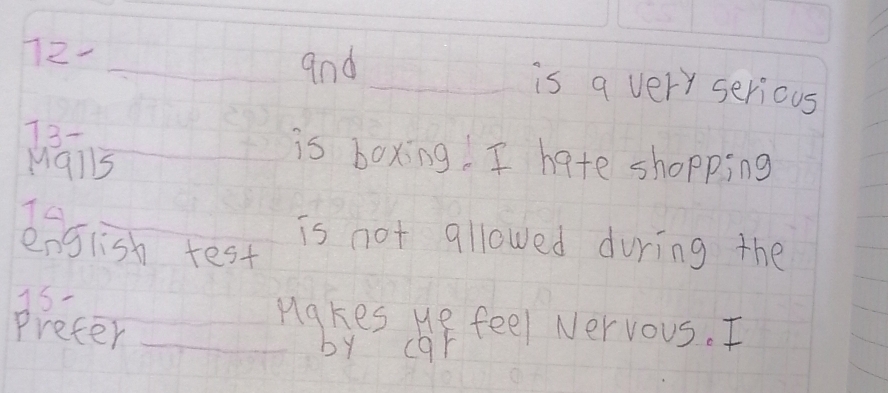 12- ______ and ______ is a very serious
13- ______ is boxing! I hate shopping
Malls
14- ______ is not allowed during the
english test
15- ______ Makes Me feel Nervous. I
Prefer ______ by car